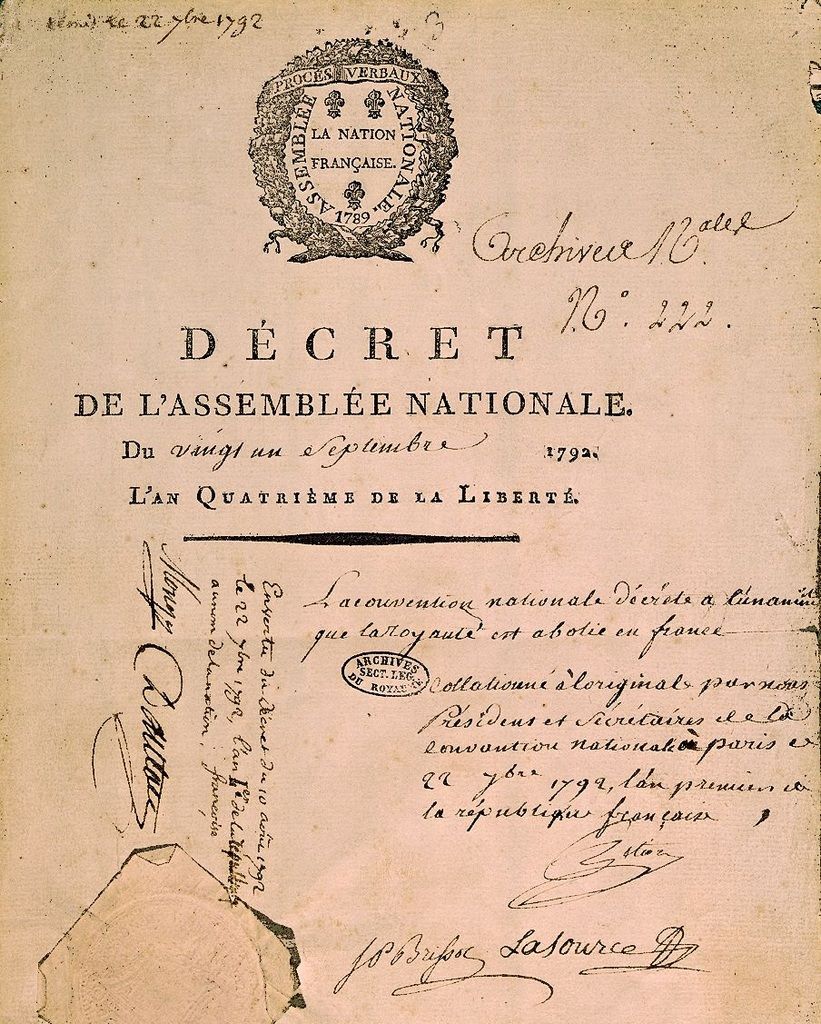 le 22 7bre 1792
PROCÈS VERBAUX
ASSEMBLÉE NATIONALE.
LA NATION
FRANÇAISE.
1789
Archives N.ales
N.° 222.
DÉCRET
DE L'ASSEMBLÉE NATIONALE.
Du vingt un Septembre 1792.
L'AN QUATRIÈME DE LA LIBERTÉ.
La convention nationale décrète a l'unanimité
que la royauté est abolie en france
ARCHIVES
SECT. LEG.
DU ROYAUME
Collationné à l'original par nous
Présidens et Sécrétaires de la
convention nationale à paris ce
22 7bre 1792, l'an premier de
la république françaises
J P Brissot Lasource
En vertu du décret du 10 août 1792
le 22 7bre 1792, l'an 1er de la république
au nom de la nation. françoise
Monge
Danton